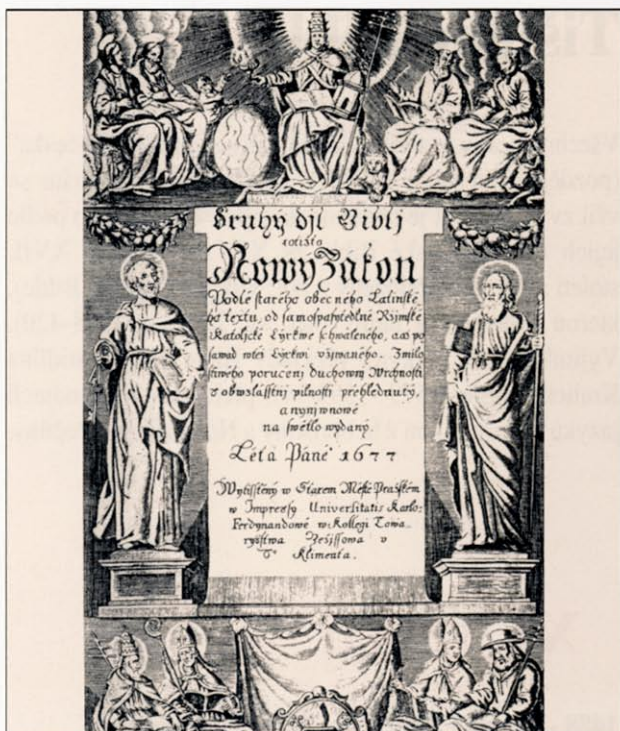 Druhý djl Biblj
totižto
Nowý Zákon
Podlé starého obecného Latinské-
ho textu, od samospasytedlné Ržjmské
Katolické Cýrkwe schwáleného, a až po
sawad wcelé Cýrkwi užjwaného. Zmilo
stiwého poručenj duchownj Wrchnosti
s obwzlásstnj pilnostj přehlednutý,
a nynj wnowě
na swětlo wydaný
Léta Páně 1677
Wytisstěný w Starém Městě Pražském
w Impressý Universitatis Karlo:
Ferdynandowé w Kollegi Towa-
ryšstwa Ježjssowa v
S° Klimenta.